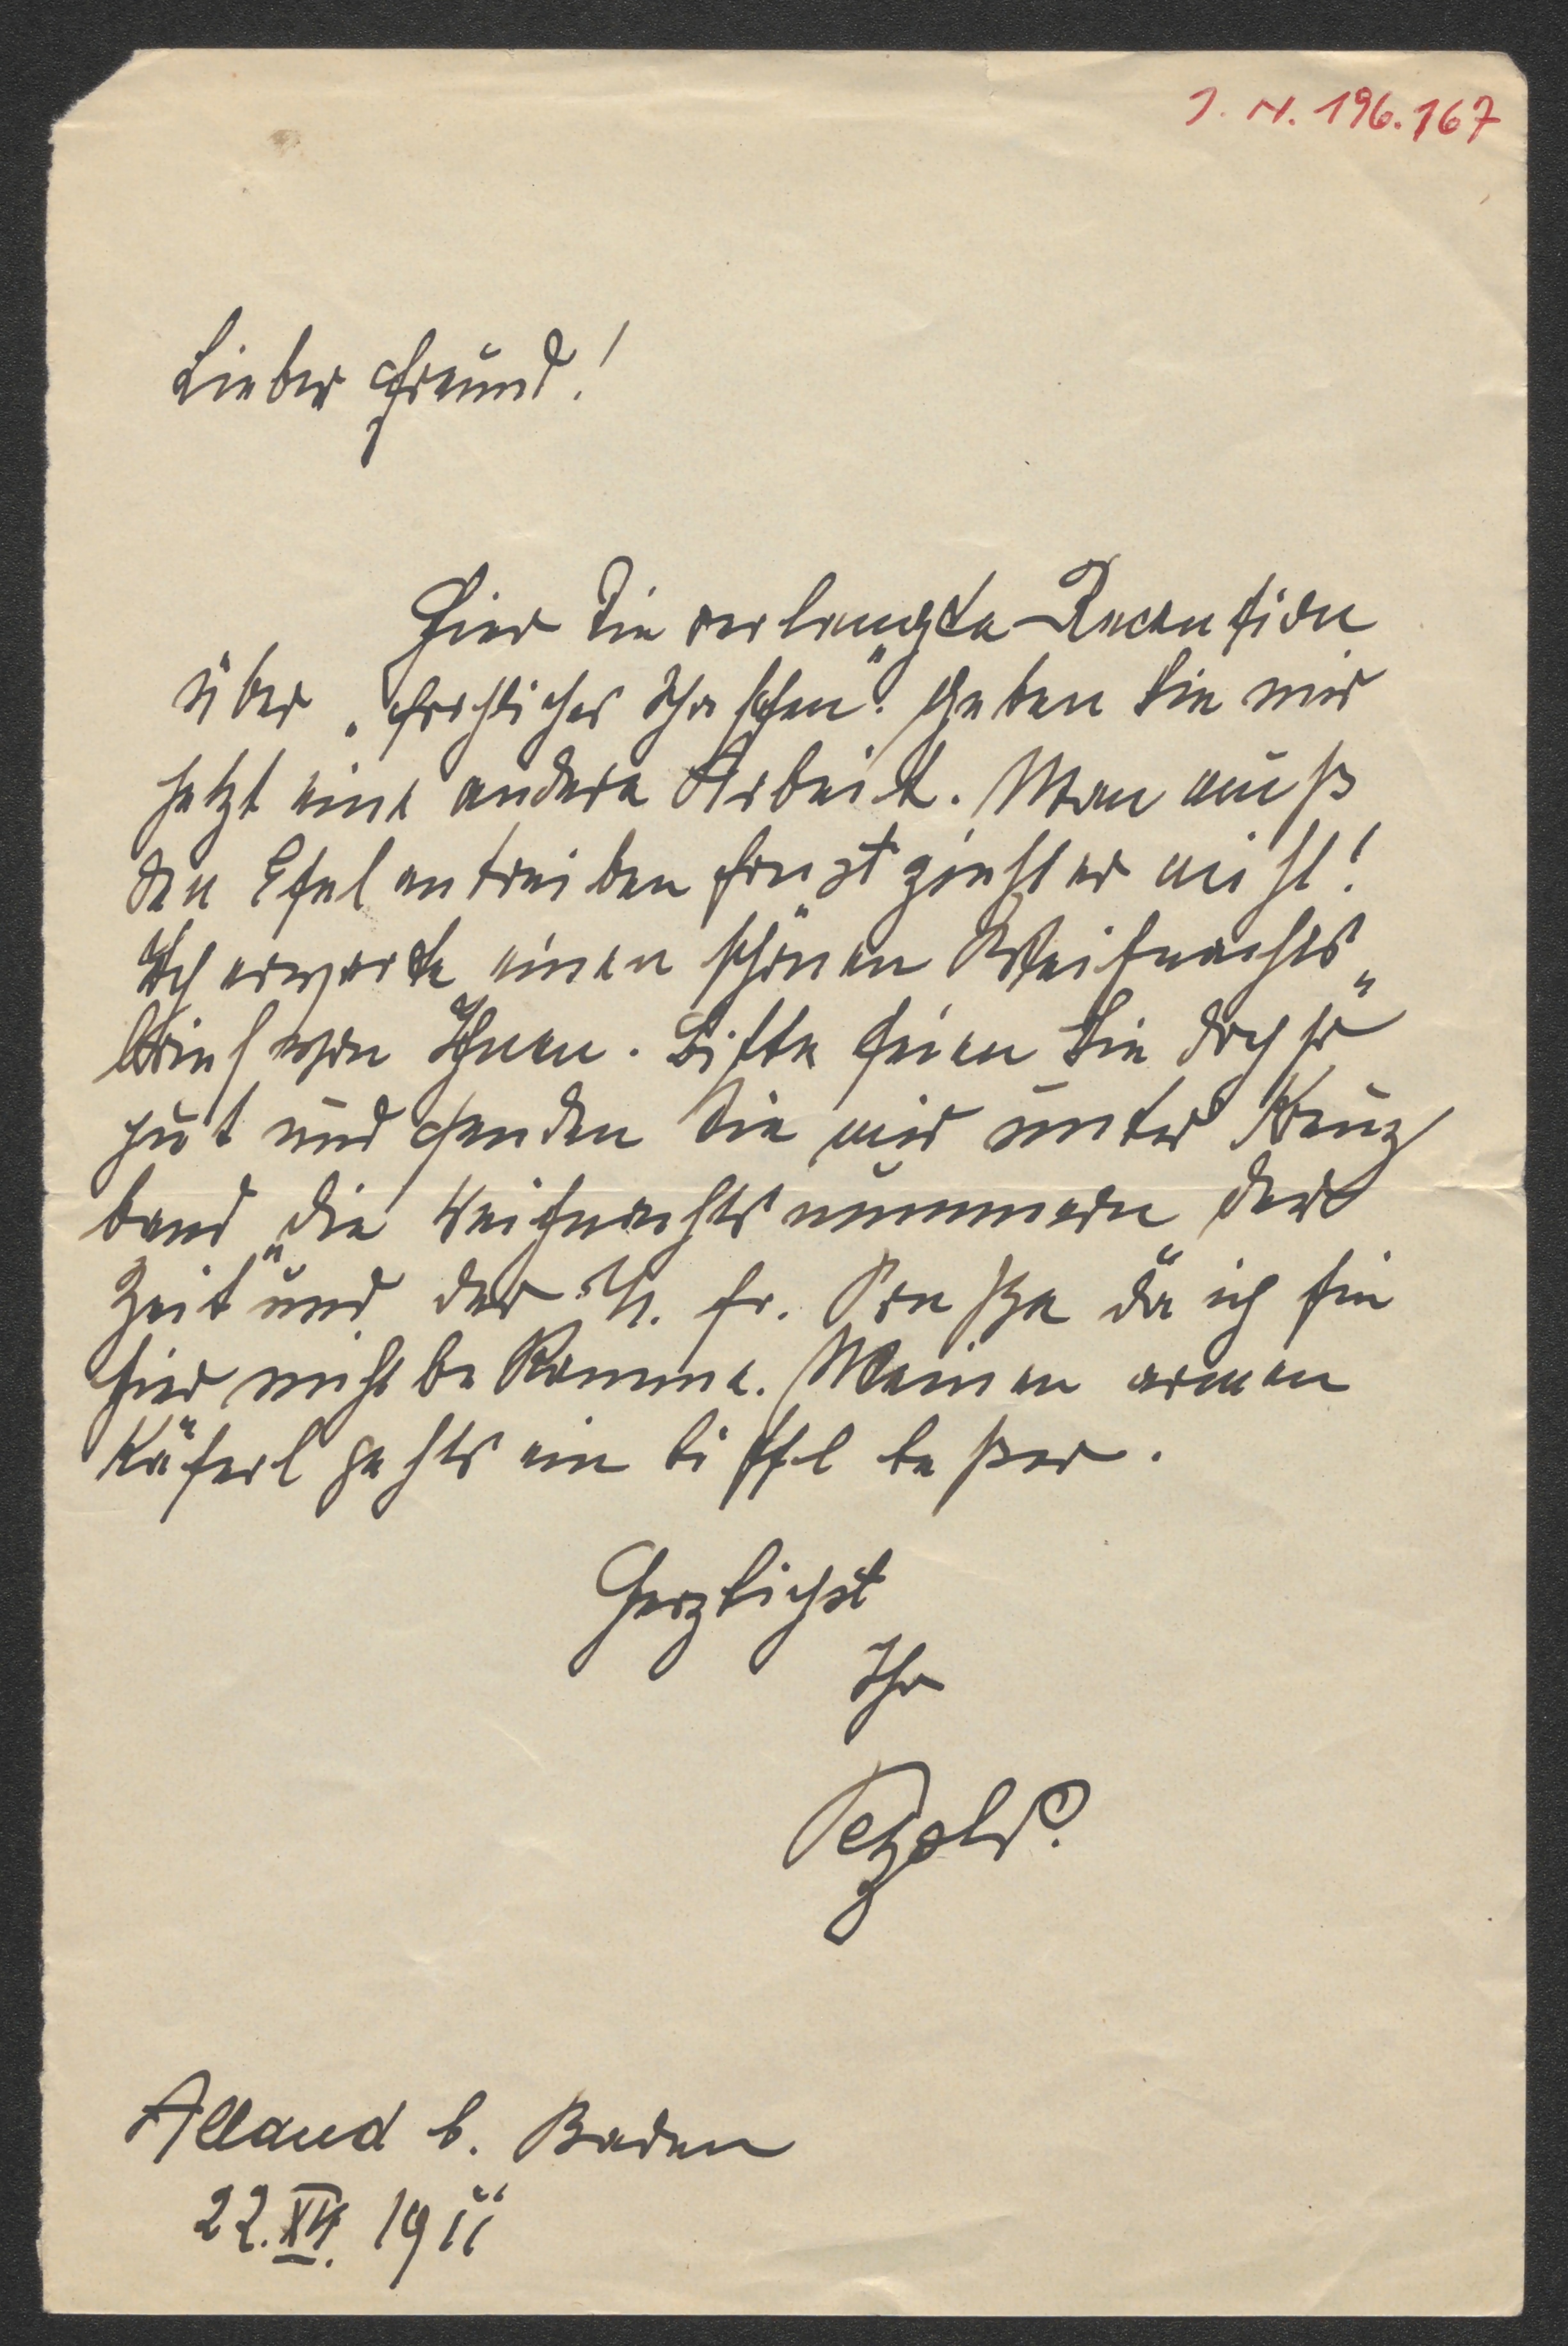 J. N. 196.167
Lieber Freund!
Hier die verlangte Recension
über „Frohliches Schaffen“. Geben Sie mir
jetzt eine andere Arbeit. Man muß
den Esel antreiben sonst zieht er nicht!
Ich erwarte einen schönen Weihnachts„
brief von Ihnen. Bitte seien Sie doch so
gut und senden Sie mir unter Kreuz
band die Weihnachtsnummern der
„Zeit“ und der N. fr. Preße da ich sie
hier nicht bekomme. Meinen armen
Käferl gehts ein bissl beßer.
Herzlichst
Ihr
Petzold.
Alland b. Baden
22. XII. 1911